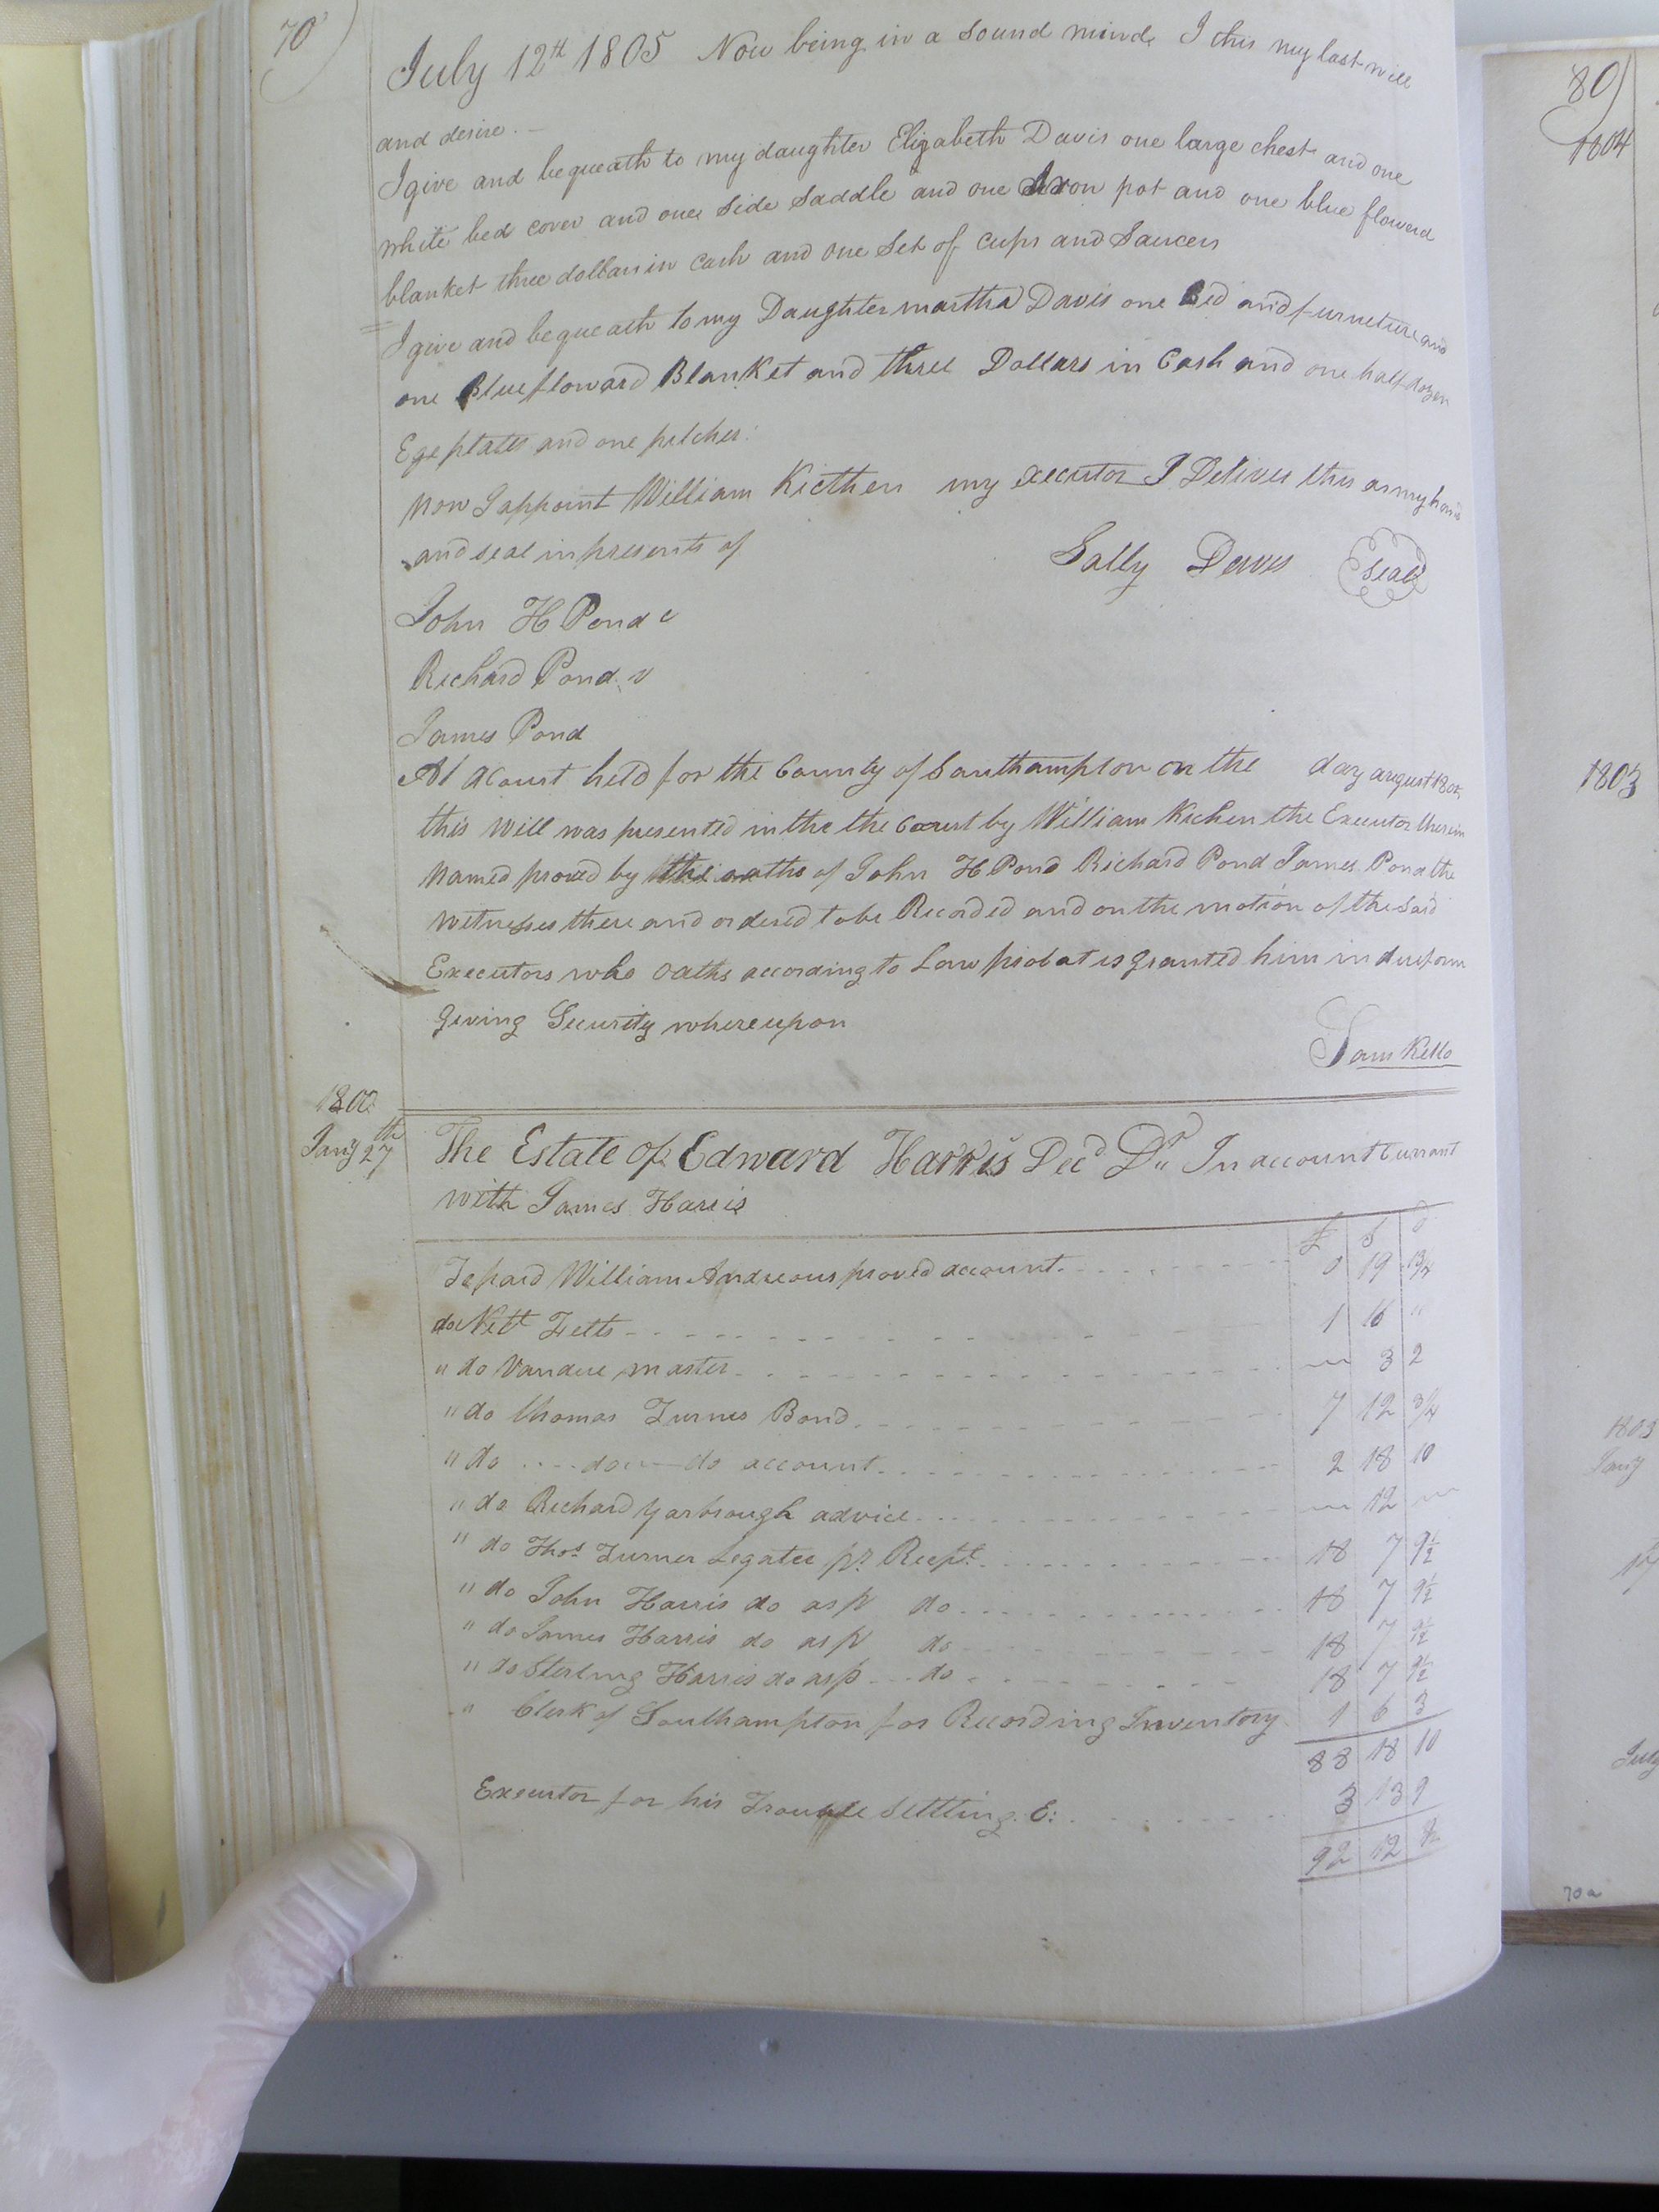 70
July 12th 1805 Now being in a Sound mind I this my last will
and desire. —
I give and bequeath to my daughter Elizabeth Davis one large chest and one
white bed cover and one Side Saddle and one Iron pot and one blue flowerd
blanket three dollars in Cash and one Set of Cups and Saucers
I give and bequeath to my Daughter martha Davis one Bed and furneture and
one Blue flowerd Blanket and three Dollars in Cash and one half dozen
Ege plates and one pitcher.
Now I appoint William Kicthen my executor I Deliver this as my hand
and seal in presents of
Sally Daves Seal
John H Pond v
Richard Pond v
James Pond
At a Court held for the County of Southampton on the day august 1805
this Will was presented in the the Court by William Kichen the Executor therein
Named proved by the oaths of John H Pond Richard Pond James Pond the
witnesses there and ordered to be Recorded and on the motion of the said
Executors who oaths according to Law probat is granted him in due form
giving Security whereupon
Sam Kello
Jany 27th
The Estate of Edward Harris Decd Dr In account Currant
with James Harris
£ S d
To paid William Andreous proved account 0 19
do Nett Fetts 1 16 "
" do Vandue master 3 2
" do thomas Turner Bond 7 12 3/4
" do do do account 2 18 10
" do Richard Yarbrough advice 12
" do Thos Turner Legatee pr Recpt 18 7 9½
" do John Harris do as pr do 18 7 9½
" do James Harris do as pr do 18 7 9½
" do Sterling Harris do as p do 18 7 9½
" Clerk of Southampton for Recording Inventory 1 6 3
88 18 10
Executor for his Trouble Settling E: 3 13 9
92 12
80
1804
1803
1803
Jany
17
July
70a